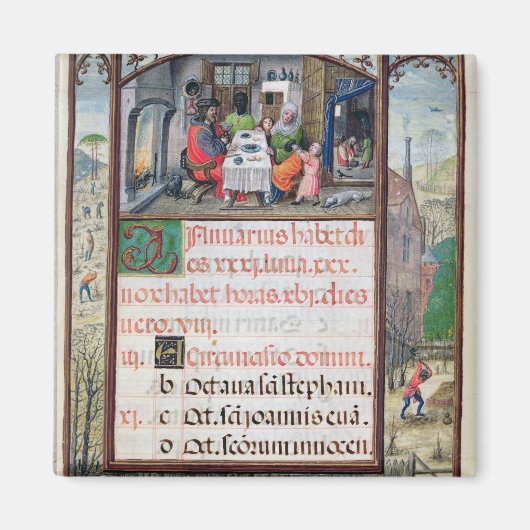 Januarius habet di
es xxxj. luna. xxx.
nox habet horas. xvj. dies
uero. viij.
iij. A Circuncisio domini.
b Octaua scī stephani.
xj. c Oct. scī joannis euā.
d Oct. scōrum innocen.